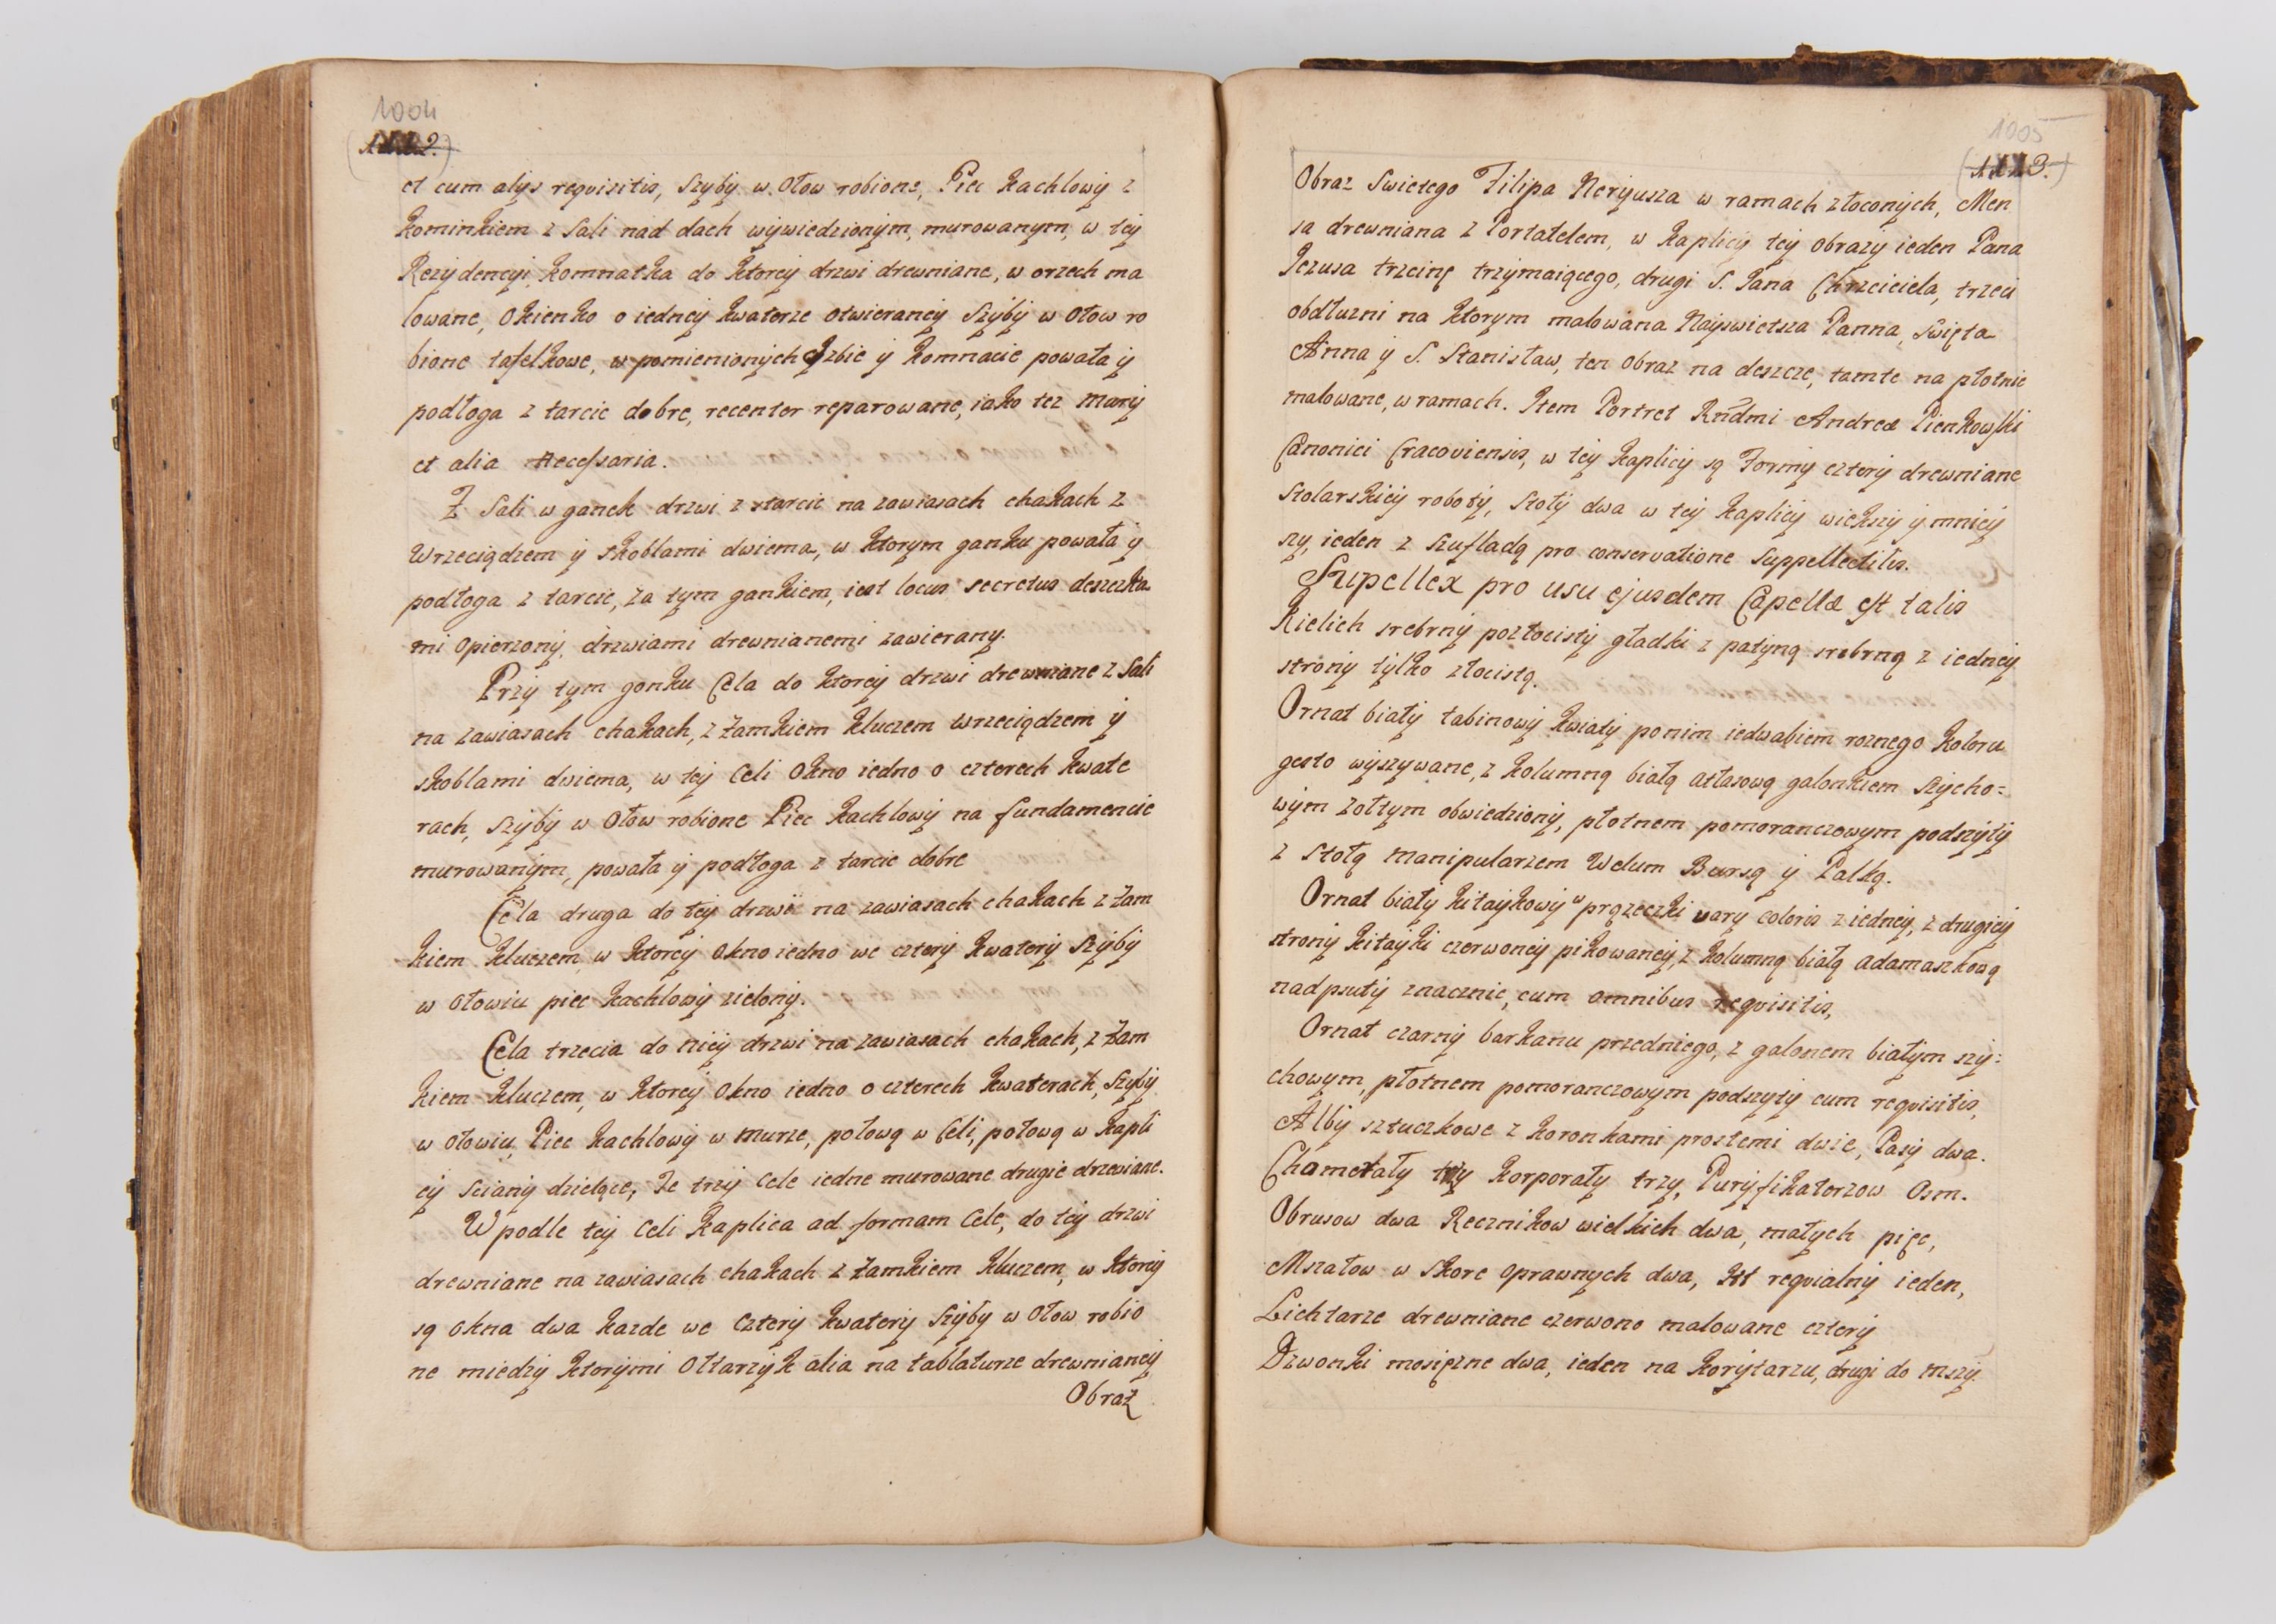 1004
et cum alijs reqvisitis, Szyby w Ołow robione, Piec kachlowy z
kominkiem z Sali nad dach wywiedzionym, murowanym, w tey
Rezydencyi, komnatka do ktorey drzwi drewniane, w orzech ma
lowane, Okienko o iedney kwaterze otwieraney Szyby w Ołow ro
bione tafelkowe, w pomienionych Izbie y komnacie powała y
podłoga z tarcic dobre, recenter reparowane, iako tez Mury
et alia Necessaria.
Z Sali w ganek drzwi z tarcic na zawiasach chakach z
Wrzeciądzem y skoblami dwiema, w ktorym ganku powała y
podłoga z tarcic, za tym gankiem, iest locus secretus deszczka
mi Opierzony, drzwiami drewnianemi zawierany.
Przy tym gonku Cela do ktorey drzwi drewniane z Sali
na zawiasach chakach, z Zamkiem kluczem wrzeciądzem y
skoblami dwiema, w tey Celi Okno iedno o czterech kwate
rach, szyby w Ołow robione Piec kachlowy na fundamencie
murowanym, powała y podłoga z tarcic dobre
Cela druga do tey drzwi na zawiasach chakach z Zam
kiem kluczem w ktorey Okno iedno we cztery kwatery Szyby
w Ołowiu piec kachlowy zielony.
Cela trzecia do niey drzwi na zawiasach chakach, z Zam
kiem kluczem, w ktorey Okno iedno o czterech kwaterach, Szyby
w Ołowiu, Piec kachlowy w Murze, połową w Celi, połową w kapli
cy Sciany dzielące, Te trzy Cele iedne murowane drugie drewiane.
W podle tey Celi kaplica ad formam Cele, do tey drzwi
drewniane na zawiasach chakach z Zamkiem kluczem, w ktorey
są Okna dwa kazde we Cztery kwatery Szyby w Ołow robio
ne miedzy ktorymi Ołtarzyk alia na tablaturze drewnianey
Obraz
1005
Obraz Swietego Filipa Neryusza w ramach złoconych, Men
sa drewniana z Portatelem, w kaplicy tey Obrazy ieden Pana
Jezusa trzcinę trzymaiącego, drugi S. Jana Chrzciciela, trzeci
obdłuzni na ktorym malowana Nayswietsza Panna, Swięta
Anna y S. Stanisław, ten Obraz na deszcze, tamte na płotnie
malowane, w ramach. Item Portret Rndmi Andreæ Pienkowski
Canonici Cracoviensis, w tey kaplicy są Formy cztery drewniane
Stolarskiey roboty, Stoły dwa w tey kaplicy wiekszy y mniey
szy, ieden z szufladą pro conservatione Suppellectilis.
Supellex pro usu ejusdem Capellæ est talis
Kielich srebrny pozłocisty gładki z patyną srebrną z iedney
strony tylko złocistą.
Ornat biały tabinowy kwiaty po nim iedwabiem roznego koloru
gesto wyszywane, z kolumną białą atłasową galonkiem szycho=
wym zołtym obwiedziony, płotnem pomoranczowym podszyty
z Stołą Manipularzem Welum Bursą y Palką.
Ornat biały kitaykowy w prązeczki vary coloris z iedney, z drugiey
strony kitayki czerwoney pikowaney, z kolumną białą adamaszkową
nadpsuty znacznie, cum omnibus reqvisitis,
Ornat czarny barkanu przedniego, z galonem białym szy=
chowym, płotnem pomoranczowym podszyty cum reqvisitis,
Alby sztuczkowe z koronkami prostemi dwie, Pasy dwa.
Chumerały trzy korporały trzy, Puryfikaterzow Osm.
Obrusow dwa Recznikow wielkich dwa, małych pięc,
Mszałow w skore Oprawnych dwa, reqvialny ieden,
Lichtarze drewniane czerwono malowane cztery
Dzwonki mosięzne dwa, ieden na korytarzu, drugi do mszy.